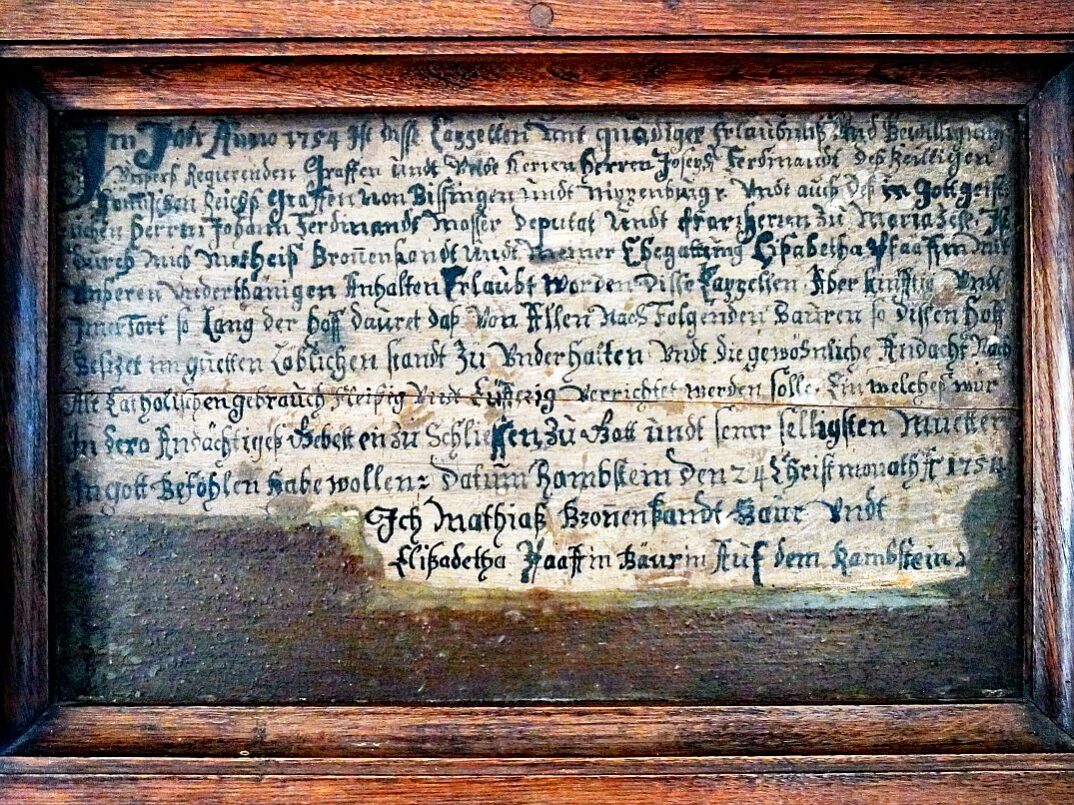 Im Jahr Anno 1754 Ist disse Cappellen mit gnädiger Erlaubnuß Und Bewilligung
Unsers Regierenden Graffen undt Herren Herren Joseph Ferdinandt deß Heiligen
Römischen Reichß Graffen von Bissingen undt Nippenburg. Undt auch deß in Gott geist
lichen Herren Johann Ferdinandt Mosser Deputat Undt Pfarrherren zu Maria Zell, Ist
durch mich Matheiß Broñenkandt Undt Meiner Ehegattung Elisabetha Pfaaffin Mit
Unseren Underthänigen Anhalten Erlaubt worden disse Cappellen. Aber kinfftig Undt
Imerfort so Lang der Hoff dauret daß Von Allen Nach Folgenden Bauren so dissen Hoff
Besizet in guetten Löblichen standt zu Underhalten Undt die gewöhnliche Andacht Nach
Alt Catholischen gebrauch Fleissig Undt Eüfferig Verrichtet werden solle, Ein welcheß wür
In dero Andächtigeß Gebett ein zu Schliessen zu Gott undt seiner selligsten Muetter
In gott Befohlen habe wollen: Datum Rambstein den 24 Christmonath A 1754
Ich Mathiaß Broñenkandt Baur Undt
Elisabetha Pfaaffin Bäurin Auf dem Rambstein